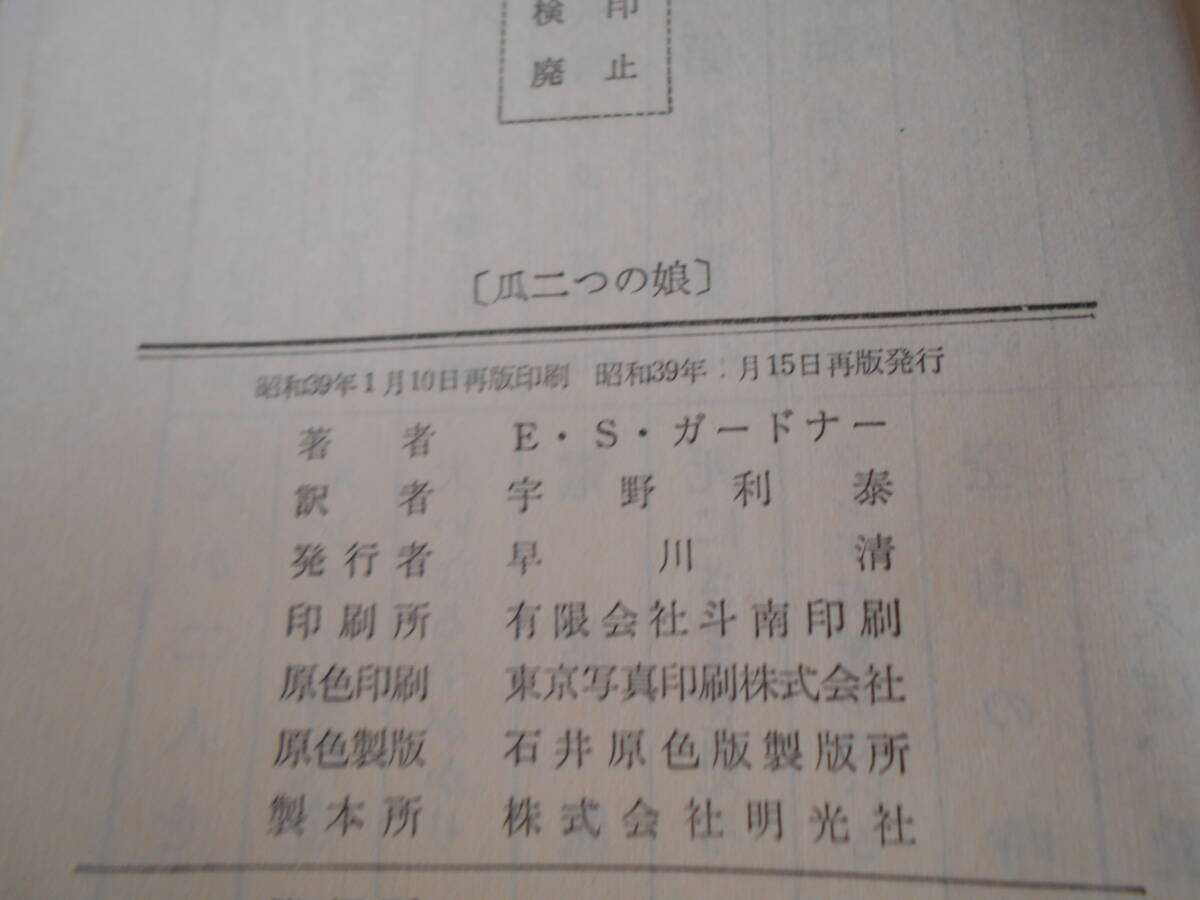 検印
廃止
〔瓜二つの娘〕
昭和39年1月10日再版印刷 昭和39年 月15日再版発行
著者 E・S・ガードナー
訳者 宇野利泰
発行者 早川清
印刷所 有限会社斗南印刷
原色印刷 東京写真印刷株式会社
原色製版 石井原色版製版所
製本所 株式会社明光社